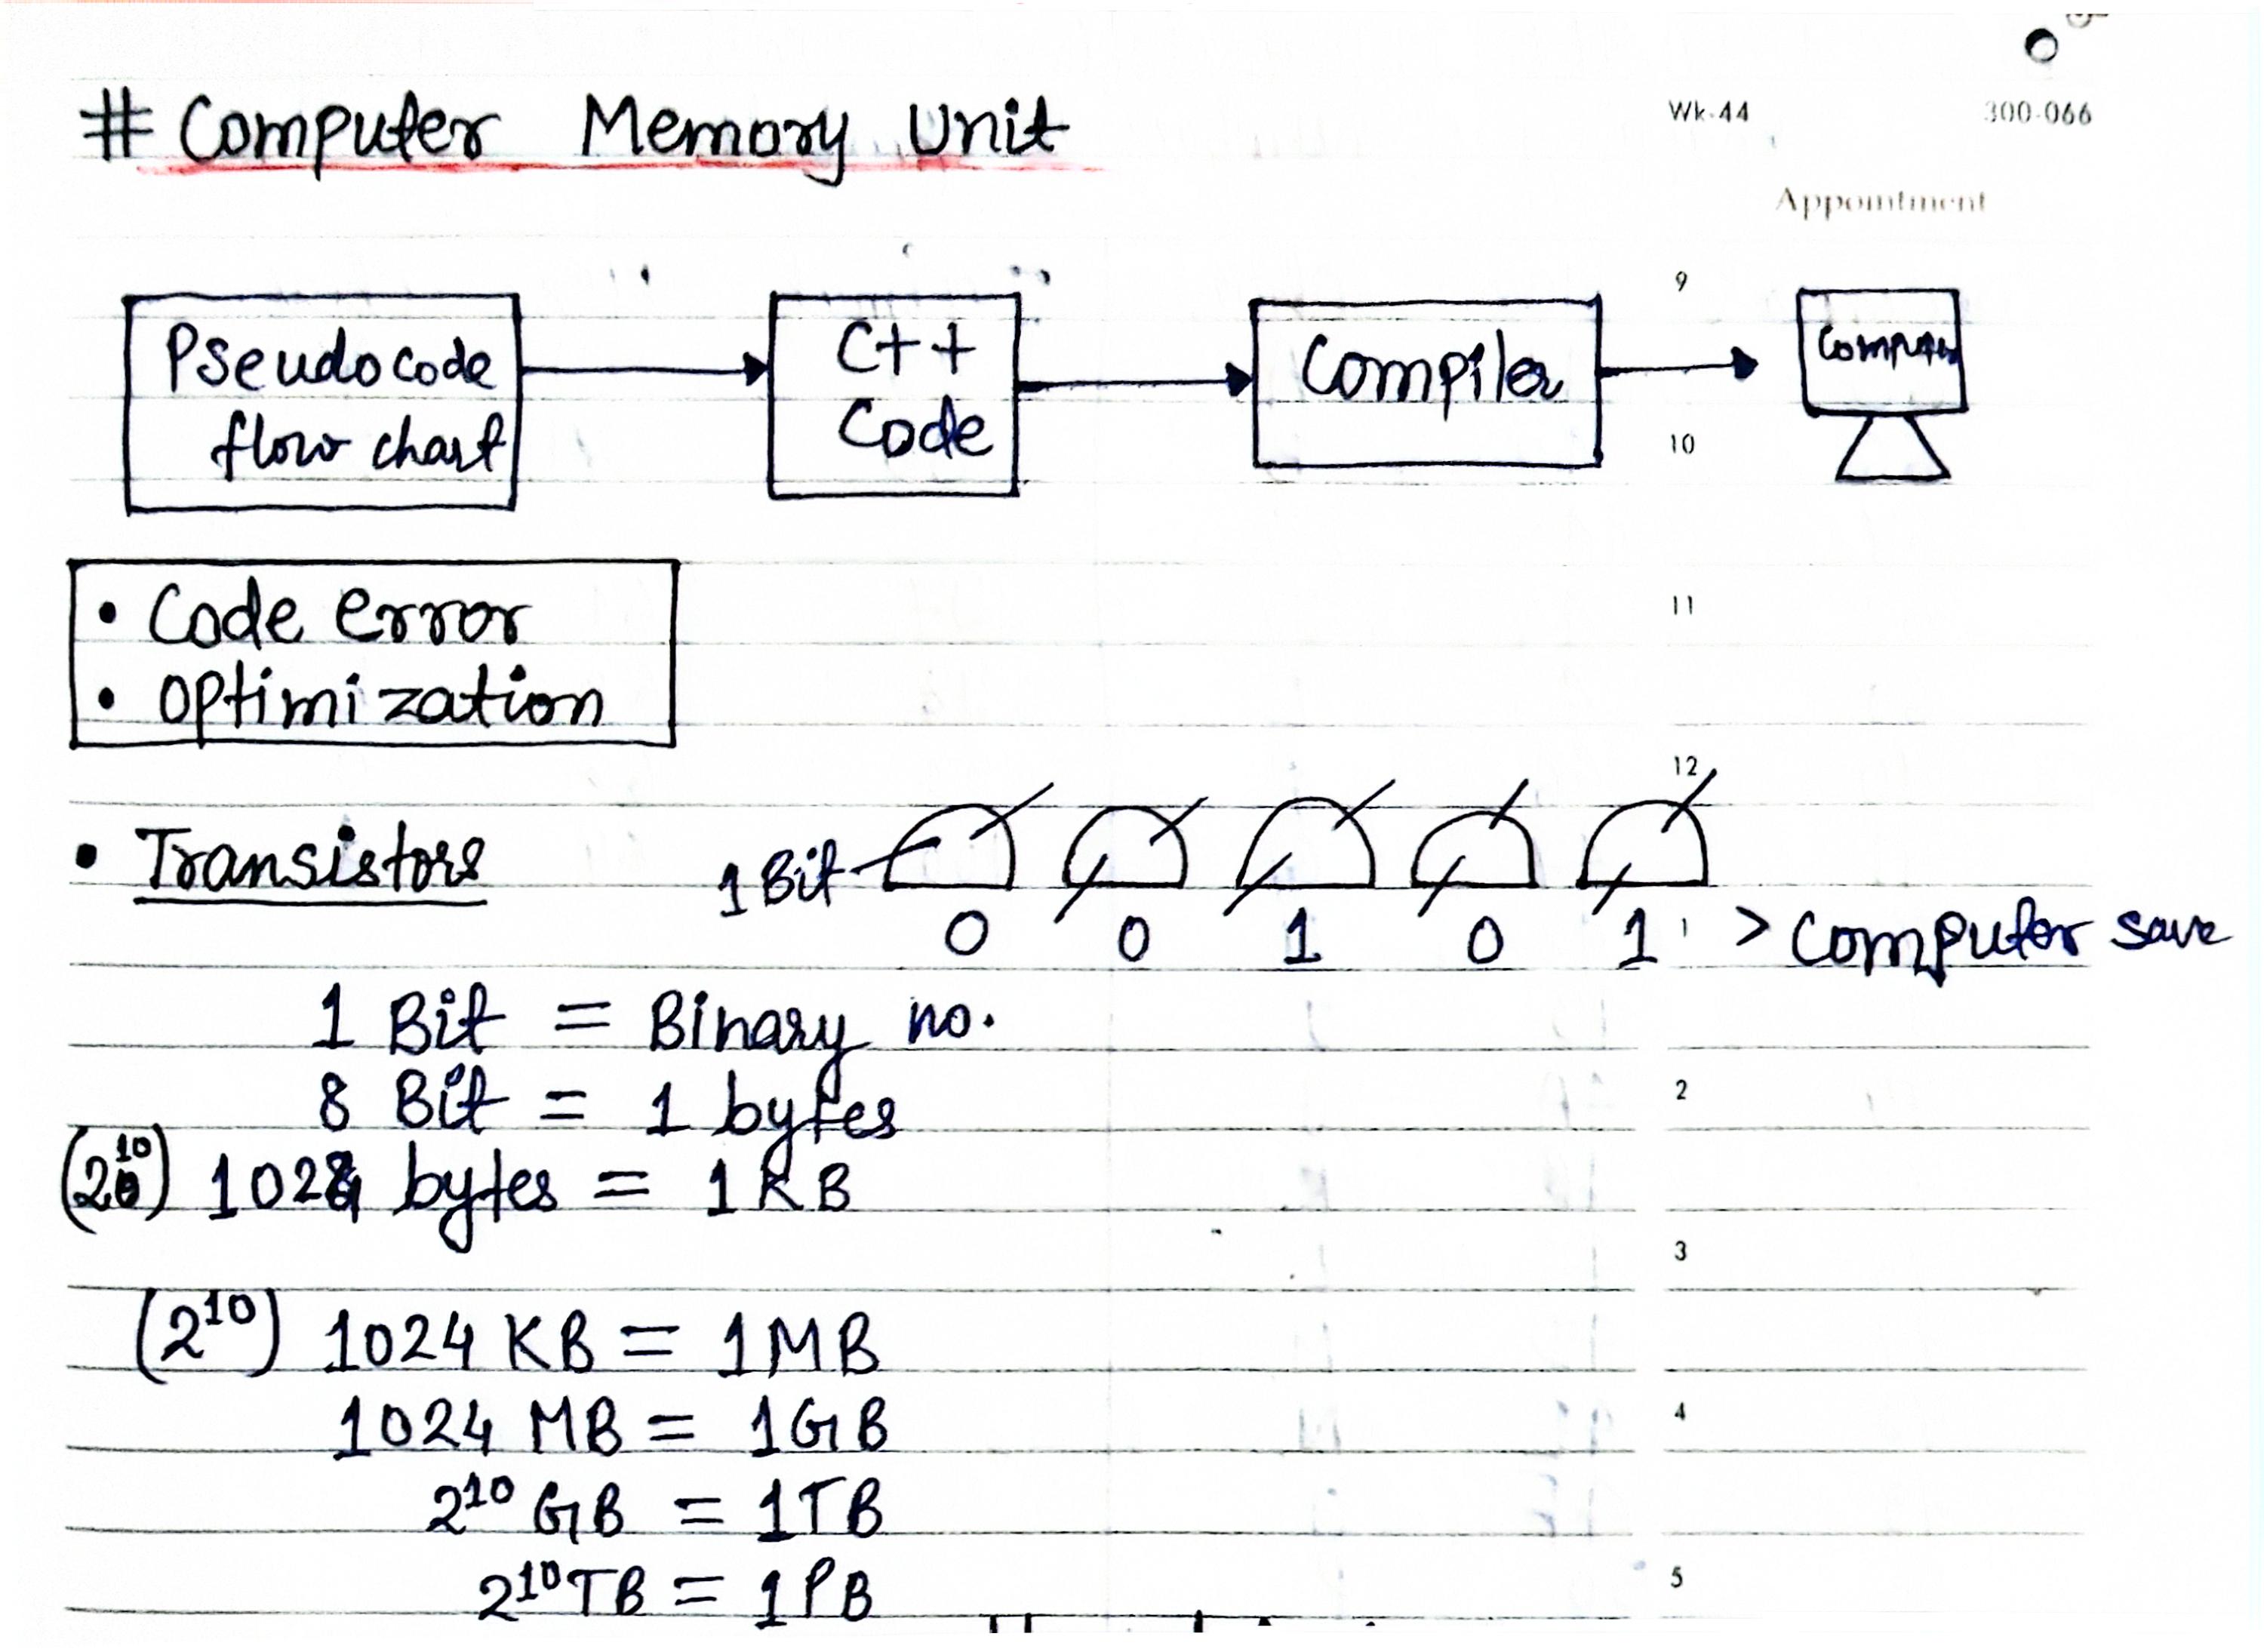 # Computer Memory Unit
Wk-44 300-066
Appointment
9
Pseudocode flow chart
C++ Code
Compiler
Computer
10
• Code error
11
• Optimization
12
• Transistors
1 Bit
0 0 1 0 1 > Computer save
1
1 Bit = Binary no.
8 Bit = 1 bytes
2
(2^10) 1024 bytes = 1KB
3
(2^10) 1024 KB = 1MB
1024 MB = 1GB
4
2^10 GB = 1TB
2^10 TB = 1PB
5